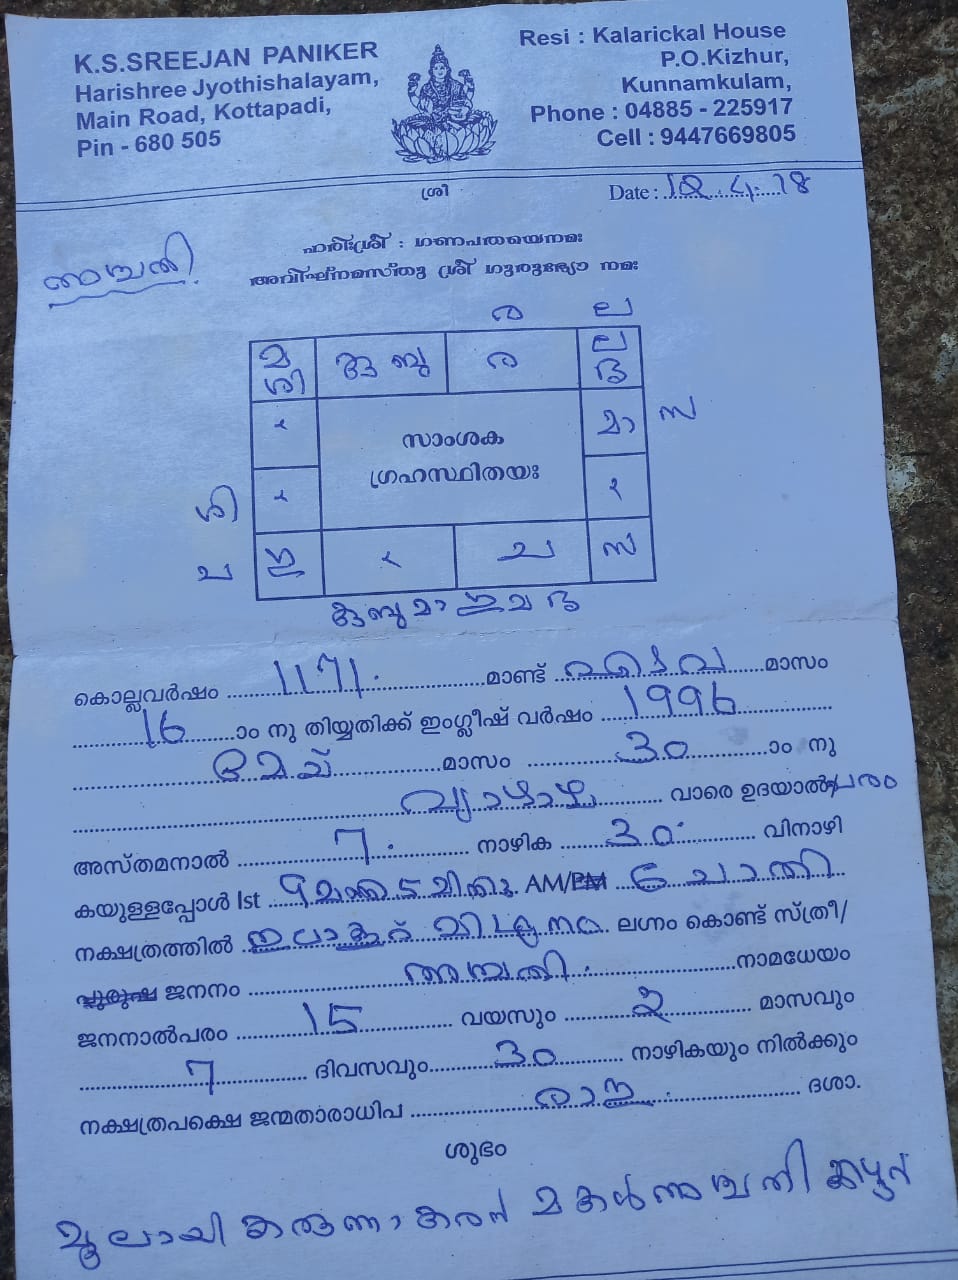 K.S.SREEJAN PANIKER
Harishree Jyothishalayam,
Main Road, Kottapadi,
Pin - 680 505
Resi : Kalarickal House
P.O.Kizhur,
Kunnamkulam,
Phone : 04885 - 225917
Cell : 9447669805
ശ്രീ
Date : 12.4.18
ഹരിഃശ്രീ : ഗണപതയെനമഃ
അവിഘ്നമസ്തു ശ്രീ ഗുരുഭ്യോ നമഃ
അമ്പതി
ര ല
മ ശി കു ബു ര ല ഗു
മാ സ
സാംശക
ഗ്രഹസ്ഥിതയഃ
ശി
ച ഗു ച സ
കു ബു മാ ഗു ച ഗു
കൊല്ലവർഷം 1171 മാണ്ട് ഇടവ മാസം
16 ാം നു തിയ്യതിക്ക് ഇംഗ്ലീഷ് വർഷം 1996
മെയ് മാസം 30 ാം നു
വ്യാഴാഴ്ച വാരെ ഉദയാൽപരം
അസ്തമനാൽ 7 നാഴിക 30 വിനാഴി
കയുള്ളപ്പോൾ Ist 9 AM/PM ചോതി
നക്ഷത്രത്തിൽ മിഥുനം ലഗ്നം കൊണ്ട് സ്ത്രീ/
പുരുഷ ജനനം അമ്പതി നാമധേയം
ജനനാൽപരം 15 വയസും 2 മാസവും
7 ദിവസവും 30 നാഴികയും നിൽക്കും
നക്ഷത്രപക്ഷെ ജന്മതാരാധിപ രാഹു ദശാ.
ശുഭം
കരുണാകരൻ മകൾ അമ്പതി